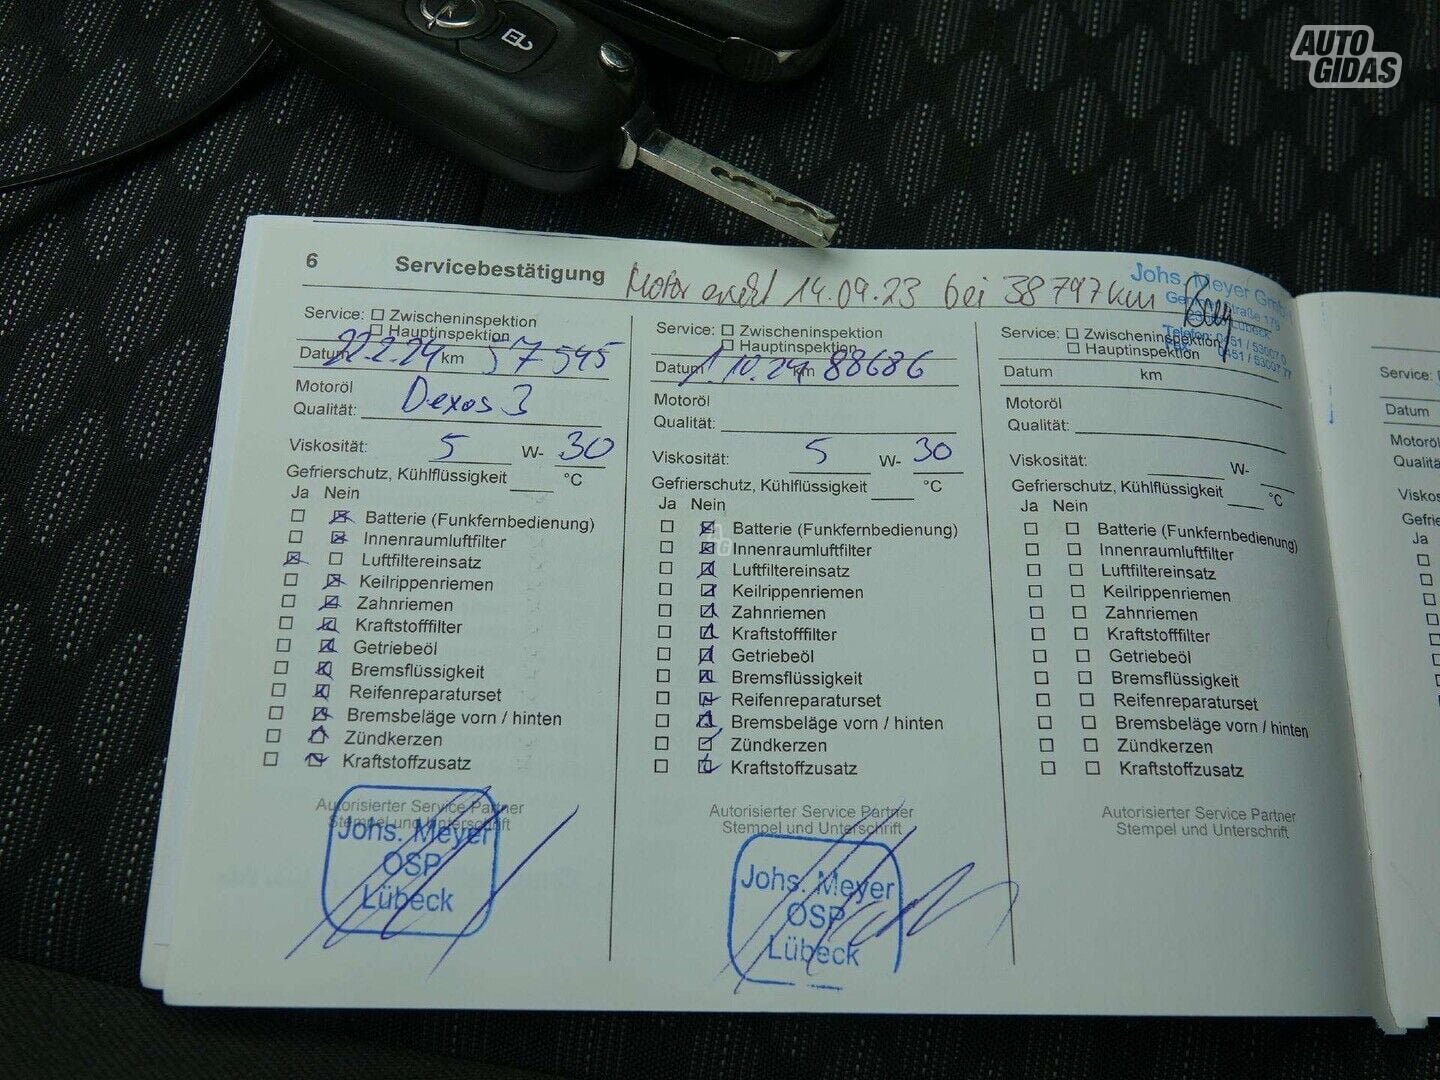 AUTO
GIDAS
6 Servicebestätigung Motor ersetzt 14.09.23 bei 38 797 km
Johs. Meyer GmbH
Service: ☐ Zwischeninspektion
☐ Hauptinspektion
Datum 22.2.24 km 57 545
Motoröl
Qualität: Dexos 3
Viskosität: 5 W- 30
Gefrierschutz, Kühlflüssigkeit °C
Ja Nein
☐ ☒ Batterie (Funkfernbedienung)
☐ ☒ Innenraumluftfilter
☒ ☐ Luftfiltereinsatz
☐ ☒ Keilrippenriemen
☐ ☒ Zahnriemen
☐ ☒ Kraftstofffilter
☐ ☒ Getriebeöl
☐ ☒ Bremsflüssigkeit
☐ ☒ Reifenreparaturset
☐ ☒ Bremsbeläge vorn / hinten
☐ ☒ Zündkerzen
☐ ☒ Kraftstoffzusatz
Autorisierter Service Partner
Stempel und Unterschrift
Johs. Meyer
OSP
Lübeck
Service: ☐ Zwischeninspektion
☐ Hauptinspektion
Datum 1.10.24 km 88686
Motoröl
Qualität:
Viskosität: 5 W- 30
Gefrierschutz, Kühlflüssigkeit °C
Ja Nein
☐ ☒ Batterie (Funkfernbedienung)
☐ ☒ Innenraumluftfilter
☐ ☒ Luftfiltereinsatz
☐ ☒ Keilrippenriemen
☐ ☒ Zahnriemen
☐ ☒ Kraftstofffilter
☐ ☒ Getriebeöl
☐ ☒ Bremsflüssigkeit
☐ ☒ Reifenreparaturset
☐ ☒ Bremsbeläge vorn / hinten
☐ ☒ Zündkerzen
☐ ☒ Kraftstoffzusatz
Autorisierter Service Partner
Stempel und Unterschrift
Johs. Meyer
OSP
Lübeck
Service: ☐ Zwischeninspektion
☐ Hauptinspektion
Datum km
Motoröl
Qualität:
Viskosität: W-
Gefrierschutz, Kühlflüssigkeit °C
Ja Nein
☐ ☐ Batterie (Funkfernbedienung)
☐ ☐ Innenraumluftfilter
☐ ☐ Luftfiltereinsatz
☐ ☐ Keilrippenriemen
☐ ☐ Zahnriemen
☐ ☐ Kraftstofffilter
☐ ☐ Getriebeöl
☐ ☐ Bremsflüssigkeit
☐ ☐ Reifenreparaturset
☐ ☐ Bremsbeläge vorn / hinten
☐ ☐ Zündkerzen
☐ ☐ Kraftstoffzusatz
Autorisierter Service Partner
Stempel und Unterschrift
Service:
Datum
Motoröl
Ja